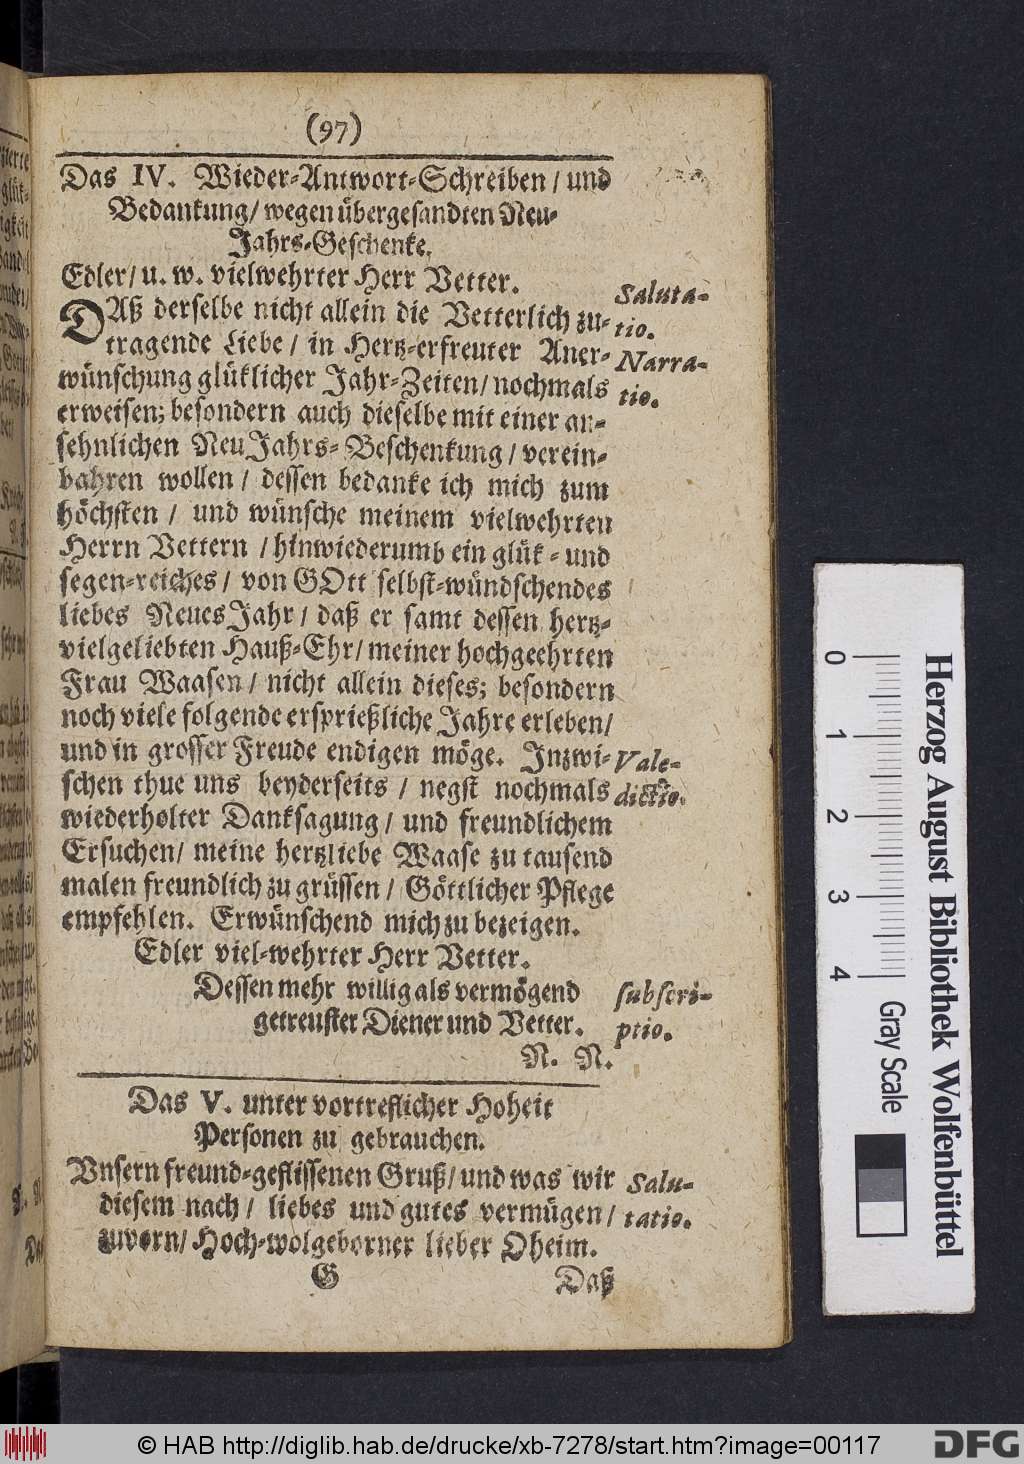 (97)
Das IV. Wieder-Antwort-Schreiben / und
Bedankung / wegen übergesandten Neu-
Jahrs-Geschenke.
Edler / u. w. vielwehrter Herr Vetter.
Saluta-
DAß derselbe nicht allein die Vetterlich zu-
tio.
tragende Liebe / in Hertz-erfreuter Aner-
Narra-
wünschung glüklicher Jahr-Zeiten / nochmals
tio.
erweisen; besondern auch dieselbe mit einer an-
sehnlichen NeuJahrs-Beschenkung / verein-
bahren wollen / dessen bedanke ich mich zum
höchsten / und wünsche meinem vielwehrten
Herrn Vettern / hinwiederumb ein glük- und
segen-reiches / von GOtt selbst-wündschendes
liebes NeuesJahr / daß er samt dessen hertz-
vielgeliebten Hauß-Ehr / meiner hochgeehrten
Frau Waasen / nicht allein dieses; besondern
noch viele folgende ersprießliche Jahre erleben /
und in grosser Freude endigen möge. Inzwi-
Vale-
schen thue uns beyderseits / negst nochmals
dictio.
wiederholter Danksagung / und freundlichem
Ersuchen / meine hertzliebe Waase zu tausend
malen freundlich zu grüssen / Göttlicher Pflege
empfehlen. Erwünschend mich zu bezeigen.
Edler viel-wehrter Herr Vetter.
Dessen mehr willig als vermögend
subscri-
getreuster Diener und Vetter.
ptio.
N. N.
Das V. unter vortreflicher Hoheit
Personen zu gebrauchen.
Vnsern freund-geflissenen Gruß / und was wir
Salu-
diesem nach / liebes und gutes vermügen /
tatio.
zuvorn / Hoch-wolgeborner lieber Oheim.
G
Daß
0 1 2 3 4
Gray Scale
Herzog August Bibliothek Wolfenbüttel
© HAB http://diglib.hab.de/drucke/xb-7278/start.htm?image=00117
DFG